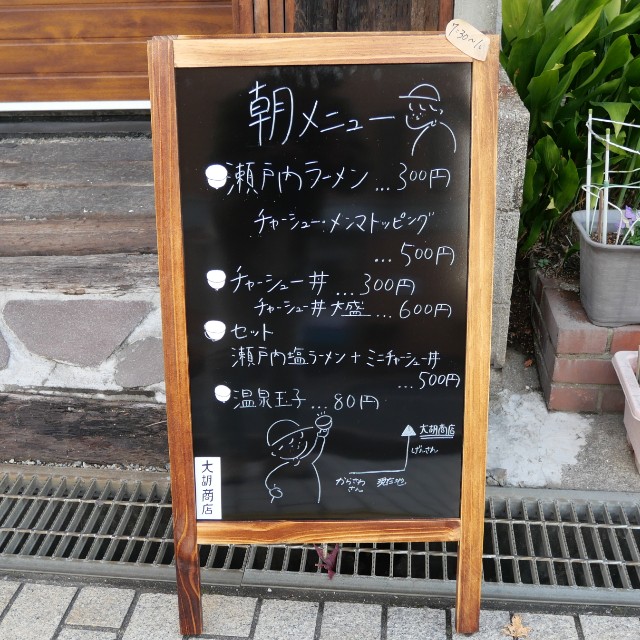 7:30〜
朝メニュー
瀬戸内ラーメン…300円
チャーシュー・メンマトッピング
…500円
チャーシュー丼…300円
チャーシュー丼大盛…600円
セット
瀬戸内塩ラーメン+ミニチャーシュー丼
…500円
温泉玉子…80円
大胡商店
げんさん
からさわさん 現在地
大胡商店